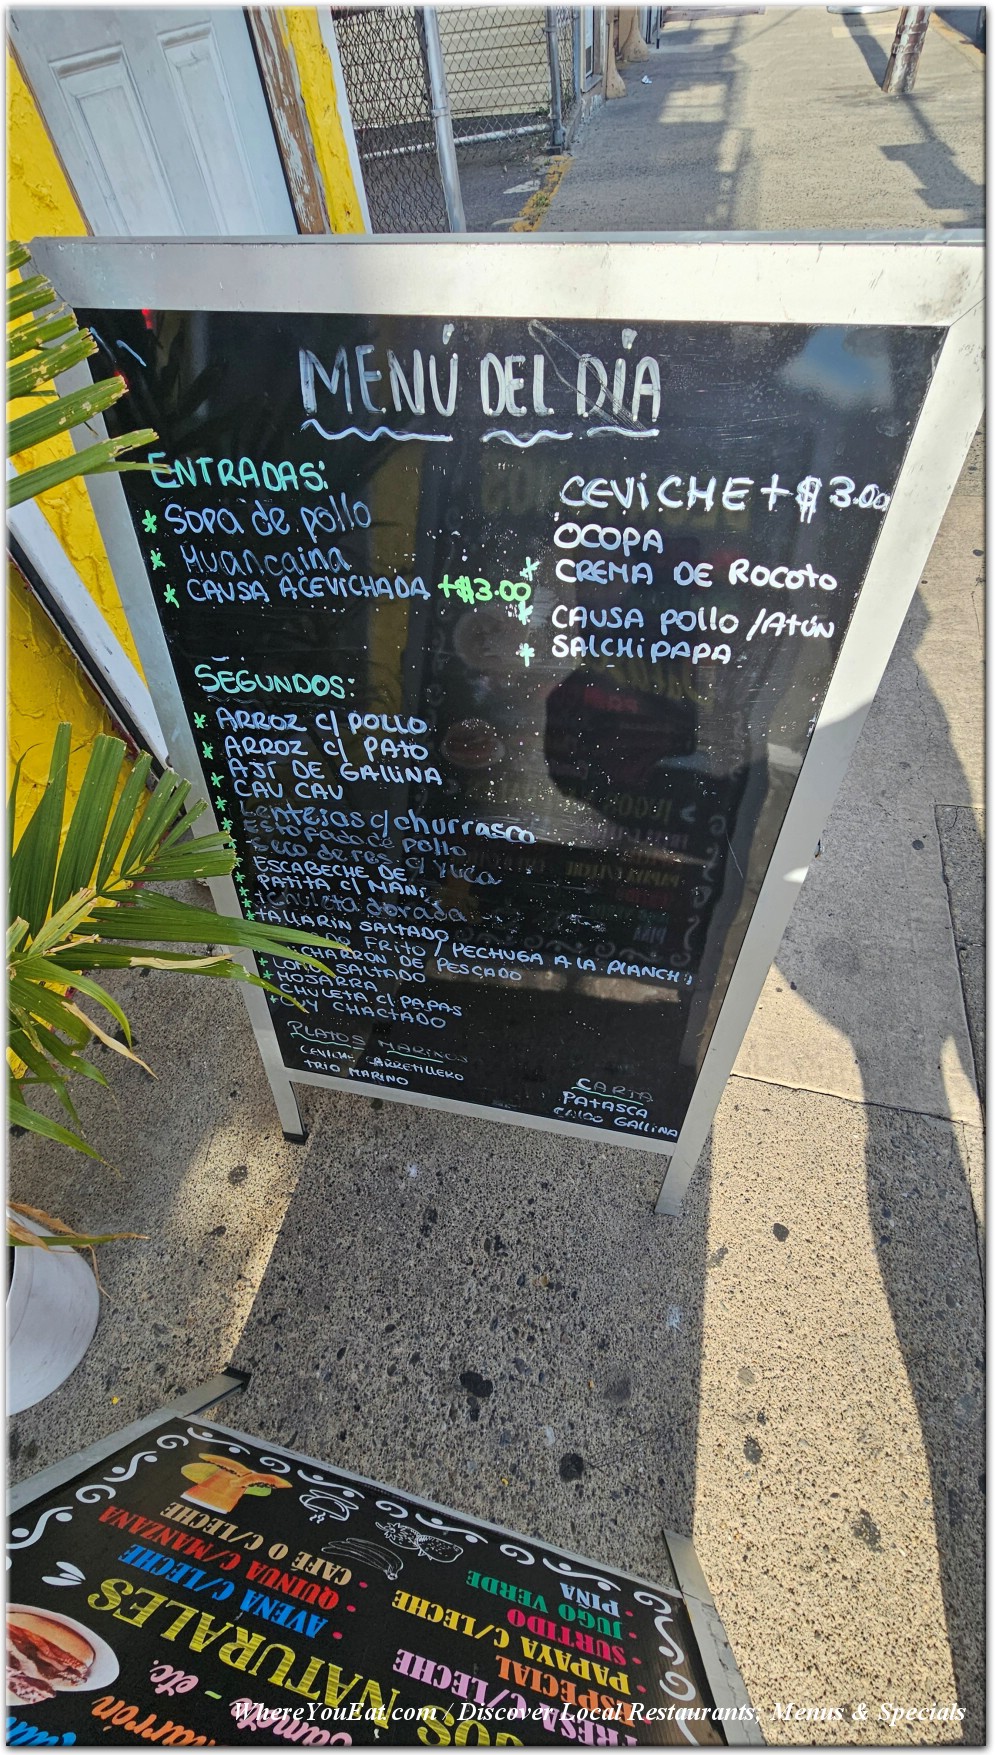 MENÚ DEL DÍA
ENTRADAS:
* Sopa de pollo
* Huancaina
* CAUSA ACEVICHADA +$3.00
CEVICHE +$3.00
OCOPA
* CREMA DE ROCOTO
* CAUSA POLLO / ATÚN
* SALCHIPAPA
SEGUNDOS:
* ARROZ C/ POLLO
* ARROZ C/ PATO
AJÍ DE GALLINA
* CAU CAU
* Lentejas c/ churrasco
* Estofado de pollo
Seco de res c/ Yuca
ESCABECHE DE
* PATITA C/ MANÍ
* chuleta dorada
* TALLARIN SALTADO
FRITO / PECHUGA A LA PLANCH
CHARRON DE PESCADO
* LOMO SALTADO
* MOJARRA
CHULETA C/ PAPAS
* CUY CHACTADO
PLATOS MARINOS
CEVICHE CARRETILLERO
TRIO MARINO
CARTA
PATASCA
CALDO GALLINA
CAFÉ O C/LECHE
QUINUA C/MANZANA
AVENA C/LECHE
NATURALES
etc.
PIÑA
JUGO VERDE
SURTIDO
PAPAYA C/LECHE
ESPECIAL
FRESA C/LECHE
WhereYouEat.com / Discover Local Restaurants, Menus & Specials